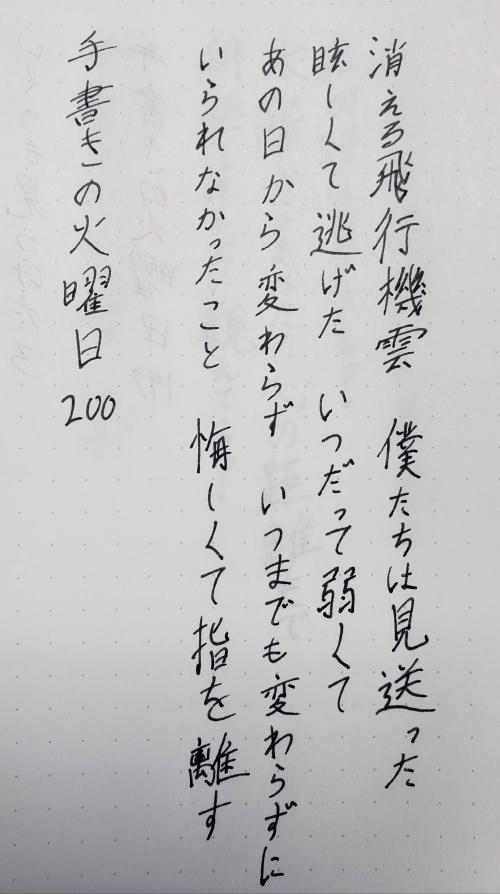 消える飛行機雲　僕たちは見送った
眩しくて逃げた　いつだって弱くて
あの日から変わらず　いつまでも変わらずに
いられなかったこと　悔しくて指を離す
手書きの火曜日 200